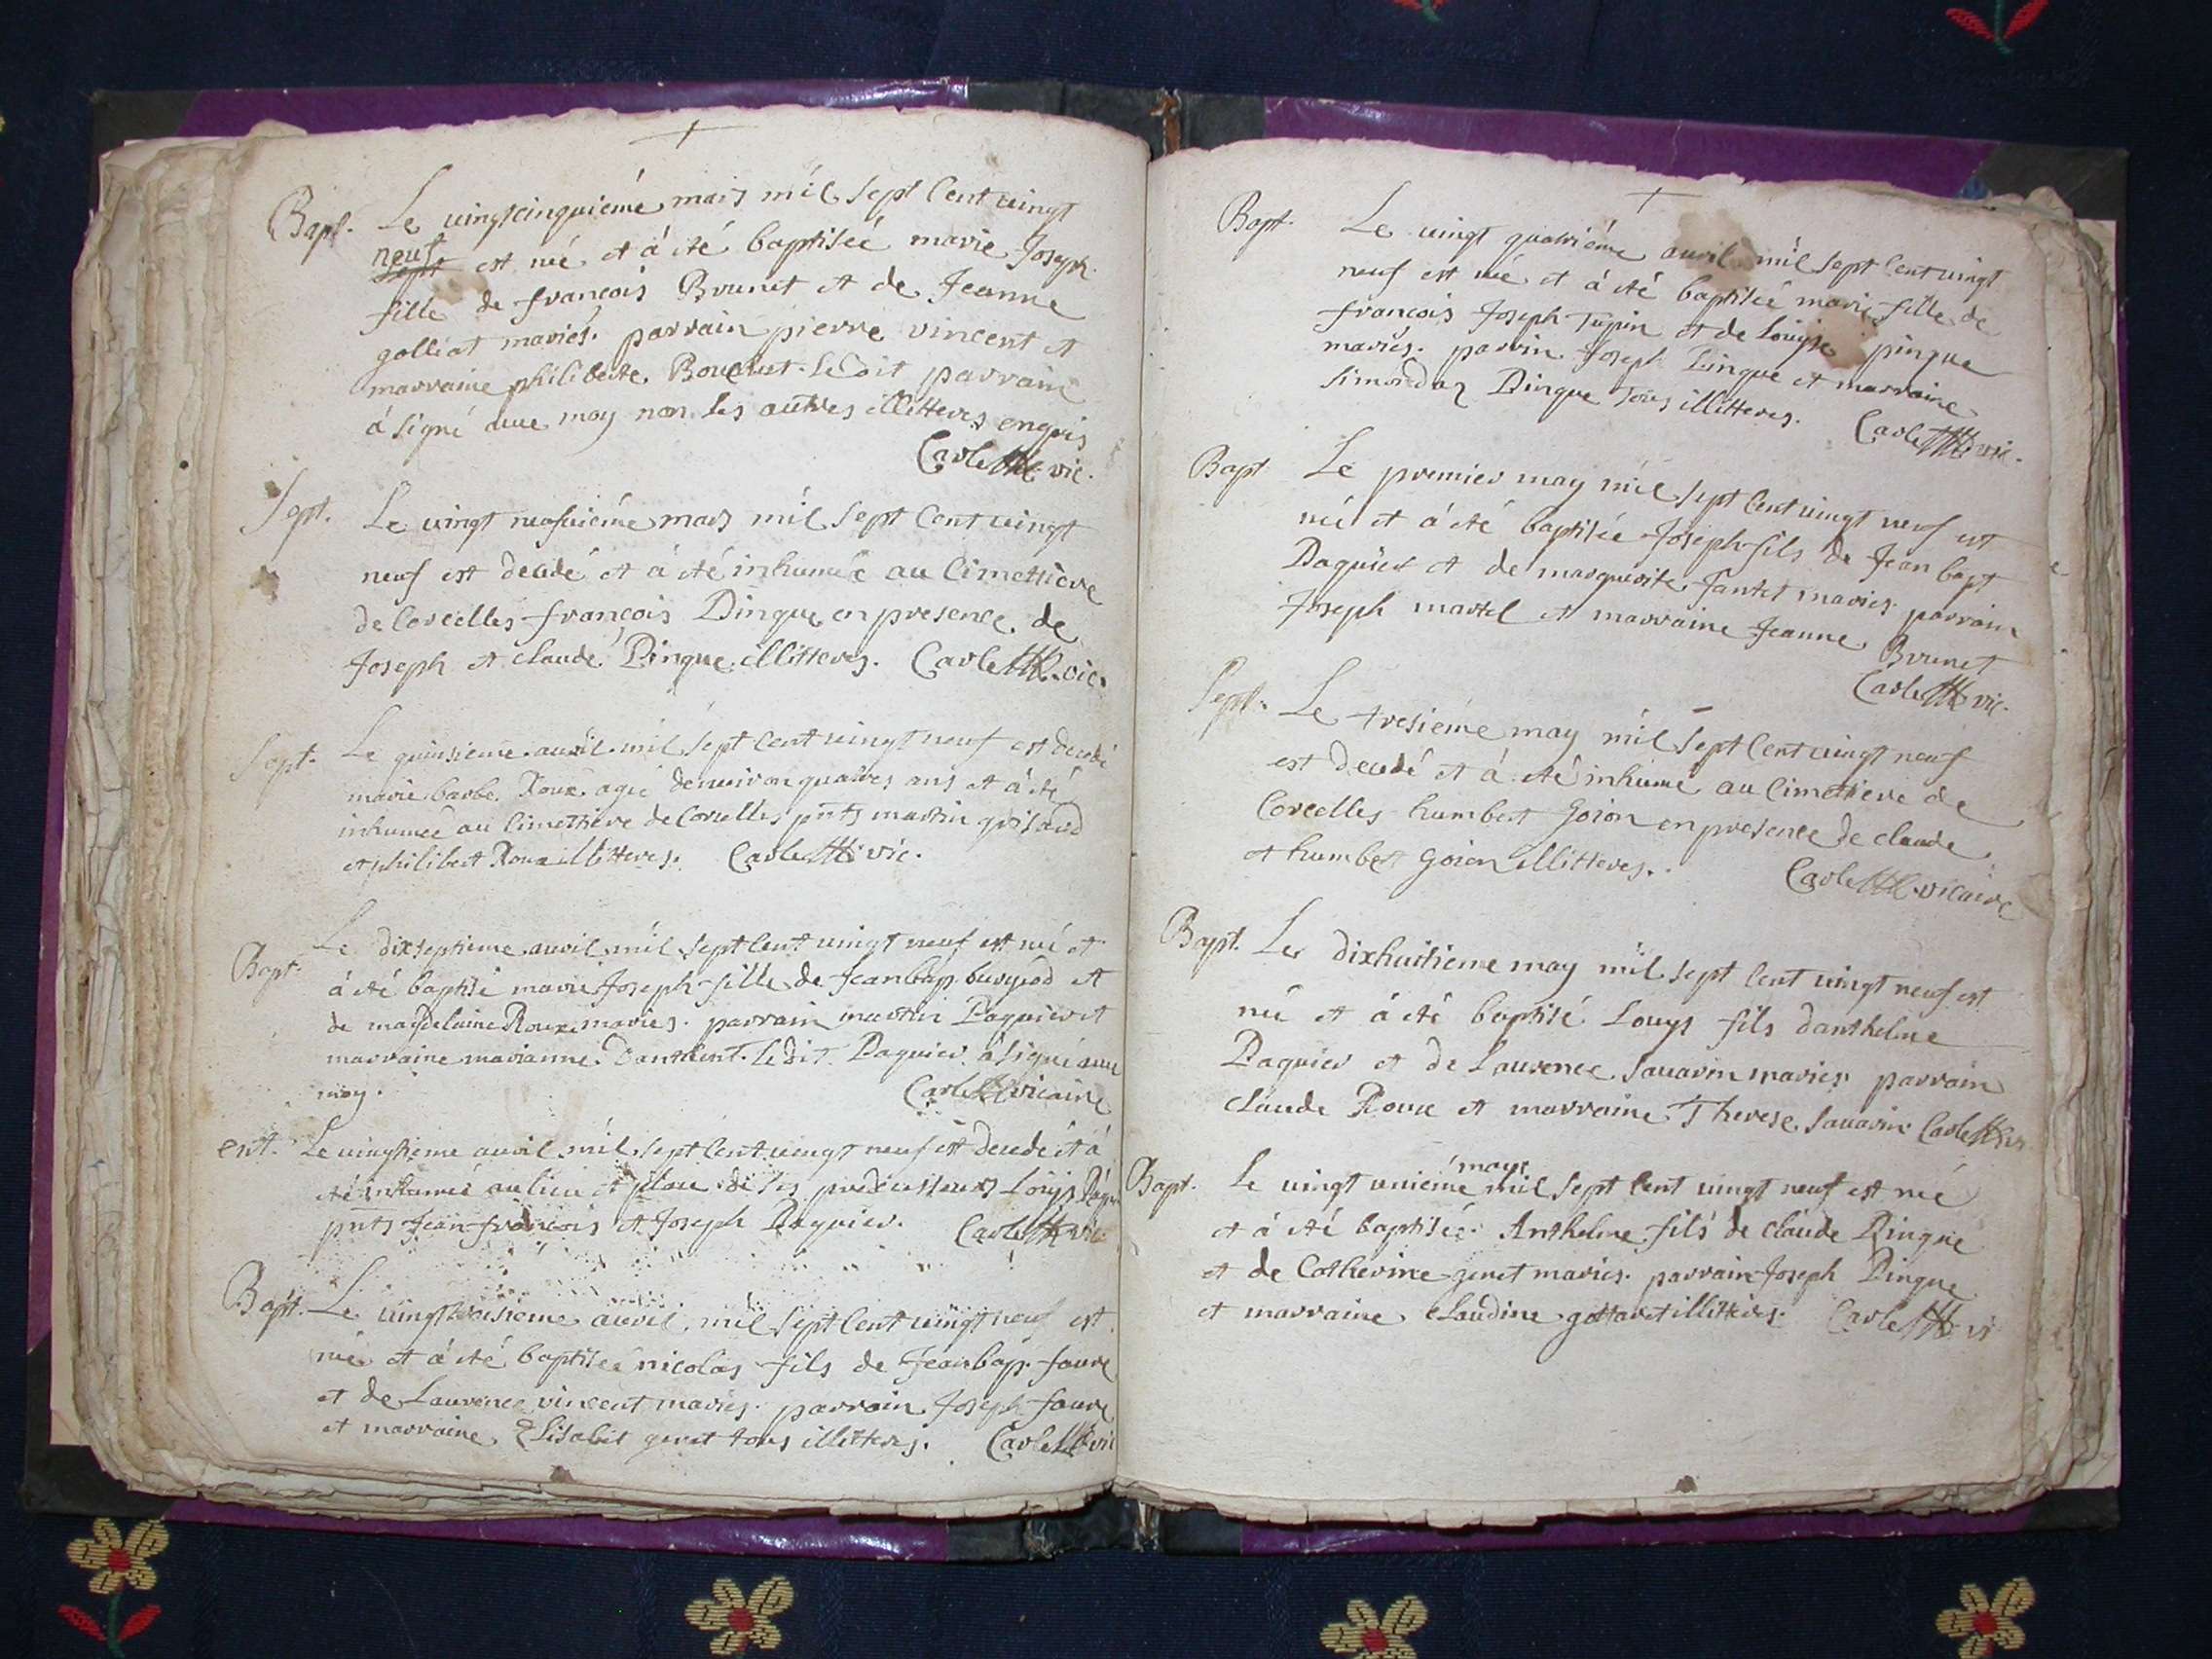 Bapt. Le vingtcinquiéme mars mil sept cent vingt
neuf sept est né et à été baptiseé marie Joseph
fille de francois Brunet et de Jeanne
golliat mariés. parrain pierre vincent et
marraine philiberte Bouchet. Le dit parrain
à signé avec moy non les autres illitteres enquis
Carlette vic.
Sept. Le vingt neufuiéme mars mil sept cent vingt
neuf est decedé et à été inhumée au cimettiere
de Corcelles françois Pingue en presence de
Joseph et claude Pingue illitteres. Carlette vic.
Sept. Le quinsieme auril mil sept cent vingt neuf est decedé
marie barbe Roux ageé denuiron quatres ans et à été
inhumeé au cimettiere de Corcelles pnts martin
et philibert Roux illitteres. Carlette vic.
Bapt. Le dixseptieme auril mil sept cent vingt neuf est né et
à été baptisé marie Joseph fille de Jeanbap. burgiod et
de magdelaine Roux mariés. parrain martin Paquier et
marraine marianne Danthent. Le dit Paquier à signé avec
moy. Carlette vicaire
ent. Le vingtieme auril mil sept cent vingt neuf est decedé et à
été inhumeé au lieu et place de ses predecesseurs Louys
pnts Jean francois et Joseph Paquier. Carlette vic.
Bapt. Le vingttroisieme auril mil sept cent vingt neuf est
né et à été baptiseé nicolas fils de Jeanbap. faure
et de Laurence vincent mariés. parrain Joseph faure
et marraine Elisabet genet tous illitteres. Carlette vic
Bapt. Le vingt quatriéme auril mil sept cent vingt
neuf est né et à été baptiseé marie fille de
francois Joseph Tupin et de Louyse pingue
mariés. parrin Joseph Pingue et marraine
Pingue tous illitteres. Carlette vic.
Bapt Le premier may mil sept cent vingt neuf est
né et à été baptisée Joseph fils de Jean bapt
Paquier et de marguerite Jantet mariés parrain
Joseph martel et marraine Jeanne Brunet
Carlette vic.
Sept. Le tresiéme may mil sept cent vingt neuf
est decedé et à été inhumé au cimettiere de
Corcelles humbert goion en presence de claude
et humbert goion illitteres. Carlette vicaire
Bapt. Le dixhuitieme may mil sept cent vingt neuf est
né et à été baptisé Louys fils danthelme
Paquier et de Laurence Sauarin mariés parrain
claude Roux et marraine Therese Sauarin Carlette vi
Bapt. Le vingt uniéme may mil sept cent vingt neuf est né
et à été baptiseé Anthelme fils de claude Pingue
et de Catherine genet mariés. parrain Joseph Pingue
et marraine claudine gottaret illitteres. Carlette vi